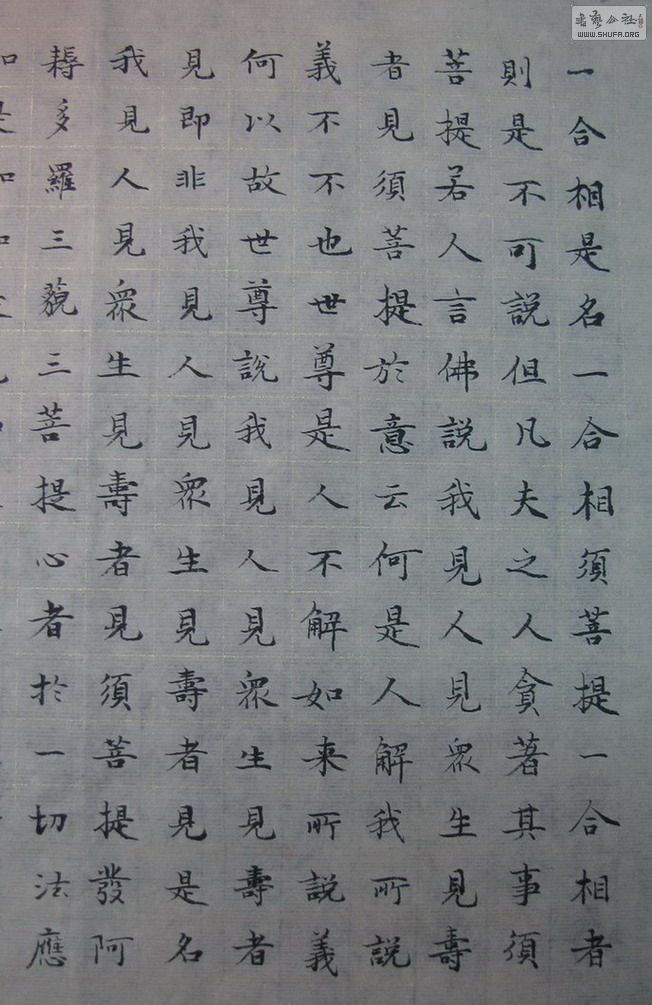 一合相是名一合相須菩提一合相者
則是不可說但凡夫之人貪著其事須
菩提若人言佛說我見人見眾生見壽
者見須菩提於意云何是人解我所說
義不不也世尊是人不解如来所說義
何以故世尊說我見人見眾生見壽者
見即非我見人見眾生見壽者見是名
我見人見眾生見壽者見須菩提發阿
耨多羅三藐三菩提心者於一切法應
書藝公社
WWW.SHUFA.ORG